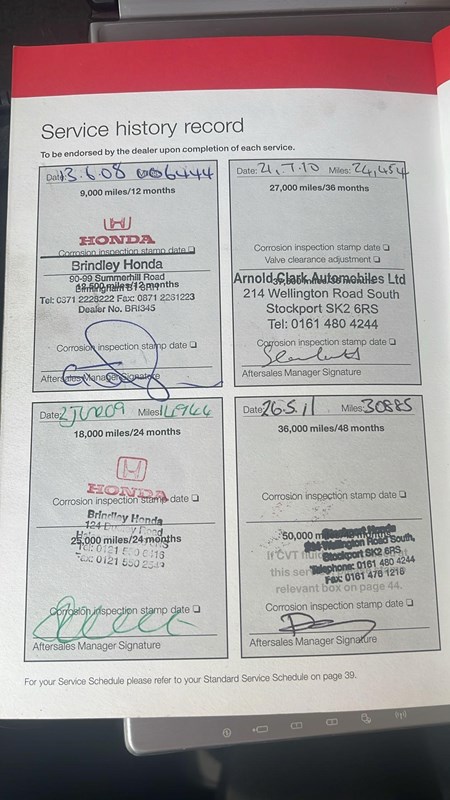 Service history record
To be endorsed by the dealer upon completion of each service.
Date: 13.6.08 006444
9,000 miles/12 months
HONDA
Corrosion inspection stamp date
Brindley Honda
90-99 Summerhill Road
12,500 miles/12 months
Tel: 0371 2228222 Fax: 0871 2231223
Dealer No. BRI345
Corrosion inspection stamp date
Aftersales Manager Signature
Date: 21.7.10 Miles: 24,454
27,000 miles/36 months
Corrosion inspection stamp date
Valve clearance adjustment
Arnold Clark Automobiles Ltd
214 Wellington Road South
Stockport SK2 6RS
Tel: 0161 480 4244
Corrosion inspection stamp date
Aftersales Manager Signature
Date: 2 JUN 09 Miles: 14944
18,000 miles/24 months
HONDA
Corrosion inspection stamp date
Brindley Honda
25,000 miles/24 months
Tel: 0121 550 0416
Corrosion inspection stamp date
Aftersales Manager Signature
Date: 26.5.11 Miles: 30885
36,000 miles/48 months
Corrosion inspection stamp date
50,000
Stockport Honda
Wellington Road South,
Stockport SK2 6RS
Telephone: 0161 480 4244
Fax: 0161 476 1216
If CVT
this
relevant box on page 44.
Corrosion inspection stamp date
Aftersales Manager Signature
For your Service Schedule please refer to your Standard Service Schedule on page 39.